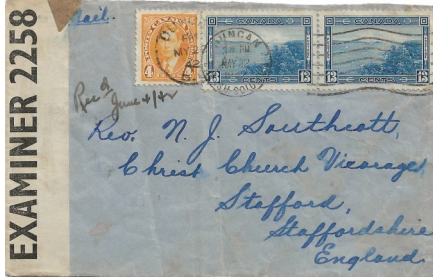 Mail.
EXAMINER 2258
4
CANADA
13 CENTS 13
CANADA
13 CENTS 13
DUNCAN
PM
MAY 22
Rec'd
June 4/42
Rev. N. J. Southcott,
Christ Church Vicarage,
Stafford,
Staffordshire
England